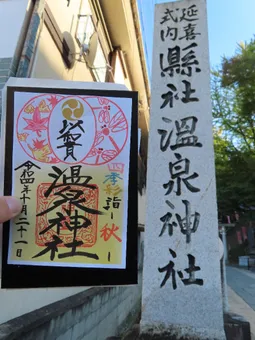 延喜
式内
縣社温泉神社
参賀
四季彩詣
ー秋ー
温泉神社
令和四年十月二十一日